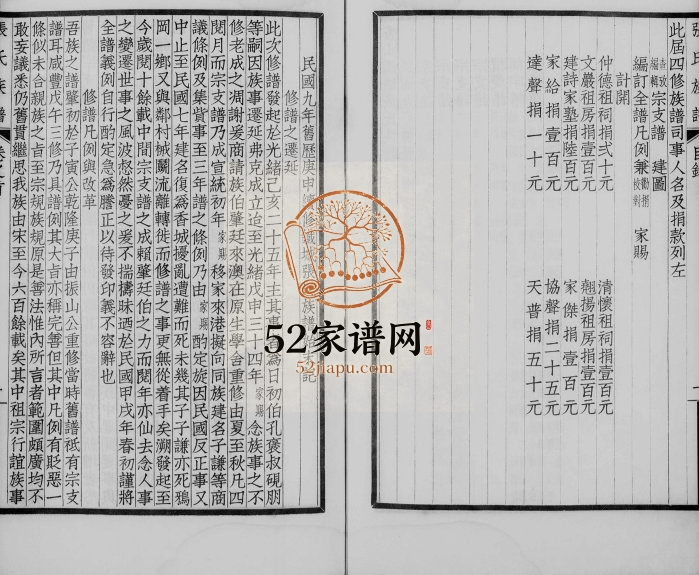 張氏族譜
目錄
此屆四修族譜司事人名及捐款列左
查攷
編輯 宗支譜 建圖
編訂全譜凡例兼 勸捐 校對 家賜
計開
仲德祖祠捐弍十元 清懷祖祠捐壹百元
文嚴祖房捐壹百元 翹揚祖房捐壹百元
建詩家塾捐陸百元 家傑捐壹百元
家給捐壹百元 協聲捐二十五元
達聲捐一十元 天普捐五十元
民國九年舊歷庚申
修譜之遷延
此次修譜發起於光緒己亥二十五年主其事
為日初伯孔褒叔硯朋
等嗣因族事遷延弗克成立迨至光緒戊申三十四年
念族事之不
修老成之凋謝爰商請族伯肇廷來澳在原生學舍重修由夏至秋凡四
閱月而宗支譜乃成宣統初年
移家來港擬向同族建名子謙等商
議條例及集貲事至三年譜之條例乃由
酌定旋因民國反正事又
中止至民國七年建名復為香城擾亂遭難而死未幾其子子謙亦死鴉
岡一鄉又與鄰村械鬭流離轉徙而修譜之事更無從着手矣溯發起至
今歲閱十餘載中間宗支譜之成賴肇廷伯之力而閱年亦仙去念人事
之變遷世事之風波惄然憂之爰不揣檮昧迺於民國甲戌年春初謹將
全譜義例自行酌定急為謄正以待發印義不容辭也
修譜凡例與改革
吾族之譜肇初於子寅公乾隆庚子由振山公重修當時舊譜祇有宗支
譜耳咸豐戊午三修乃具譜例其大旨亦稱完善但其中凡例有貶惡一
條似未合親族之旨至宗規族規原是善法惟內所言者範圍頗廣均不
敢妄議悉仍舊貫繼思我族由宋至今六百餘載矣其中祖宗行誼族事
張氏族譜
卷之首
52家谱网
52jiapu.com